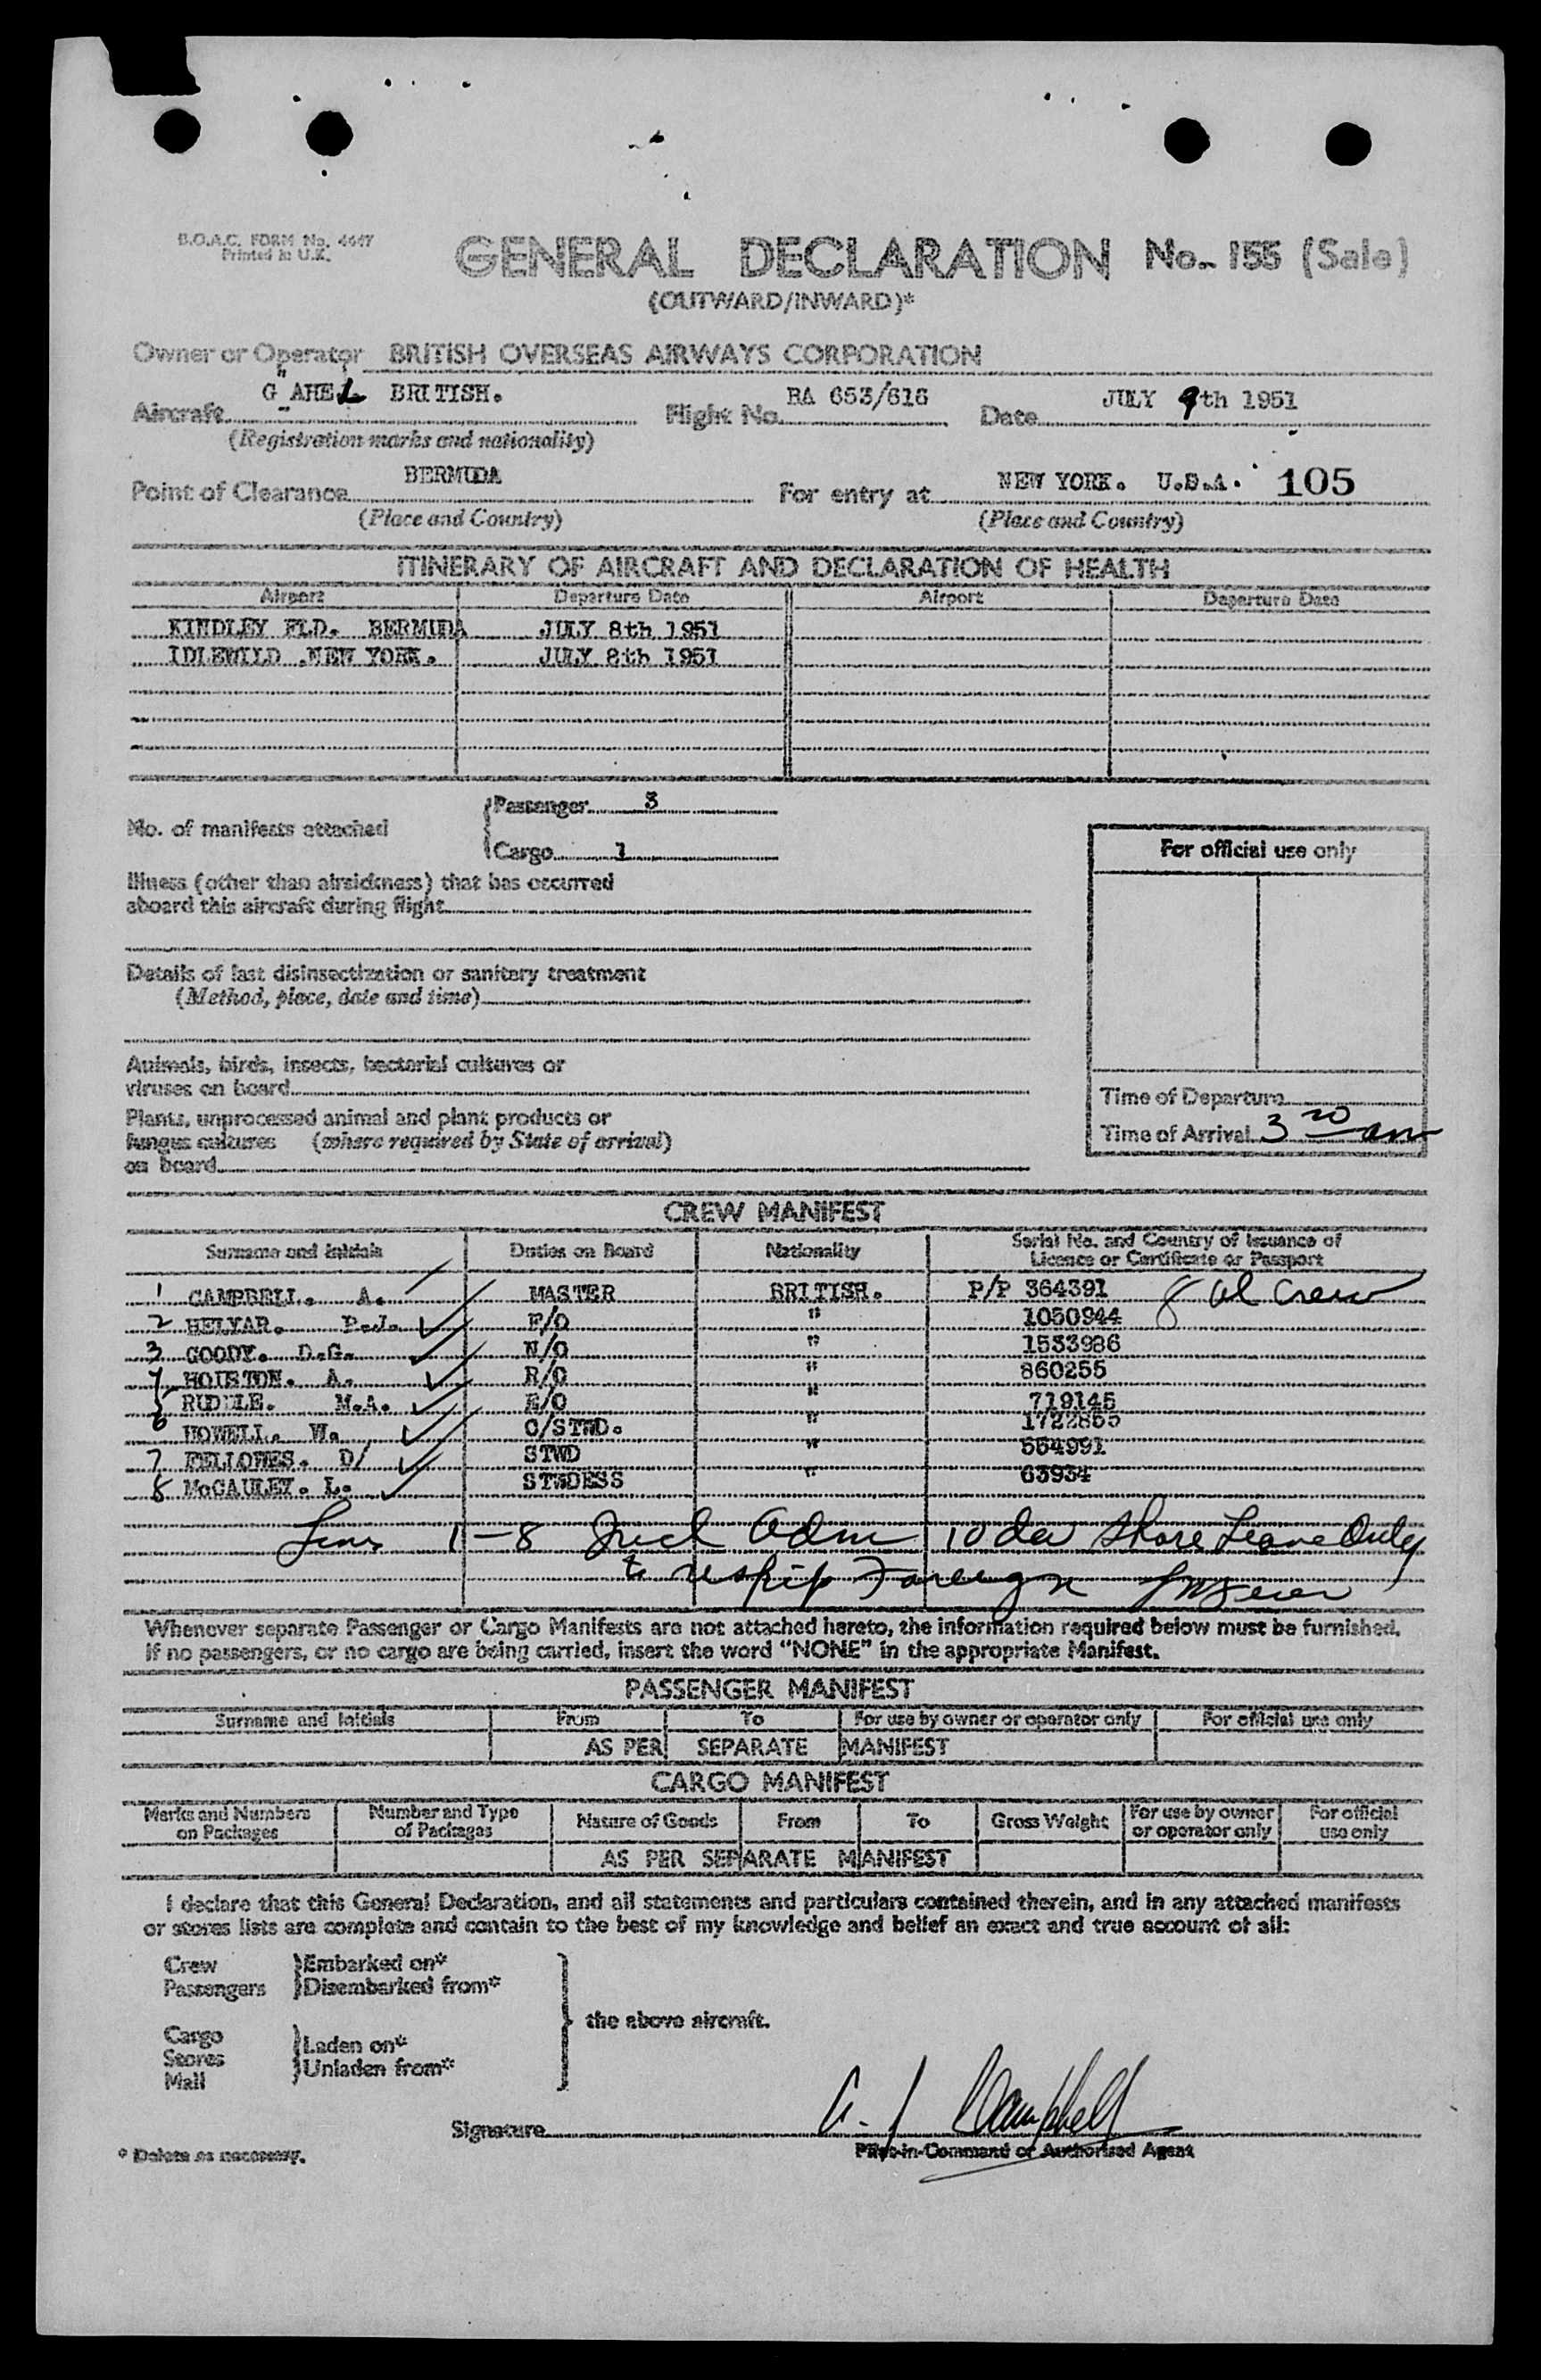 B.O.A.C. FORM No. 4447
Printed in U.K.
GENERAL DECLARATION No. 155 (Sale)
(OUTWARD/INWARD)*
Owner or Operator BRITISH OVERSEAS AIRWAYS CORPORATION
Aircraft G"AHEL BRITISH. Flight No. BA 653/616 Date JULY 9th 1951
(Registration marks and nationality)
Point of Clearance BERMUDA For entry at NEW YORK. U.S.A. 105
(Place and Country) (Place and Country)
ITINERARY OF AIRCRAFT AND DECLARATION OF HEALTH
Airport Departure Date Airport Departure Date
KINDLEY FLD. BERMUDA JULY 8th 1951
IDLEWILD .NEW YORK. JULY 8th 1951
No. of manifests attached
Passenger 3
Cargo 1
Illness (other than airsickness) that has occurred
aboard this aircraft during flight
Details of last disinsectization or sanitary treatment
(Method, place, date and time)
Animals, birds, insects, bacterial cultures or
viruses on board
Plants, unprocessed animal and plant products or
fungus cultures (where required by State of arrival)
on board
For official use only
Time of Departure
Time of Arrival 3 20 am
CREW MANIFEST
Surname and Initials Duties on Board Nationality Serial No. and Country of Issuance of
Licence or Certificate or Passport
1 CAMPBELL. A. MASTER BRITISH. P/P 364391 8 al Crew
2 HELYAR. P.J. F/O " 1050944
3 GOODY. D.G. N/O " 1533986
4 HOUSTON. A. R/O " 860255
5 RUDDLE. M.A. E/O " 719145
6 HOWELL. W. C/STWD. " 1722855
7 FELLOWES. D/ STWD " 554991
8 McCAULEY. L. STWDESS " 63934
Lins 1-8 Incl Adm 10 da Shore Leave Only
to reship Foreign
Whenever separate Passenger or Cargo Manifests are not attached hereto, the information required below must be furnished.
If no passengers, or no cargo are being carried, insert the word "NONE" in the appropriate Manifest.
PASSENGER MANIFEST
Surname and Initials From To For use by owner or operator only For official use only
AS PER SEPARATE MANIFEST
CARGO MANIFEST
Marks and Numbers on Packages Number and Type of Packages Nature of Goods From To Gross Weight For use by owner or operator only For official use only
AS PER SEPARATE MANIFEST
I declare that this General Declaration, and all statements and particulars contained therein, and in any attached manifests
or stores lists are complete and contain to the best of my knowledge and belief an exact and true account of all:
Crew
Passengers
Embarked on*
Disembarked from*
Cargo
Stores
Mail
Laden on*
Unladen from*
the above aircraft.
Signature A. J Campbell
Pilot-in-Command or Authorised Agent
* Delete as necessary.